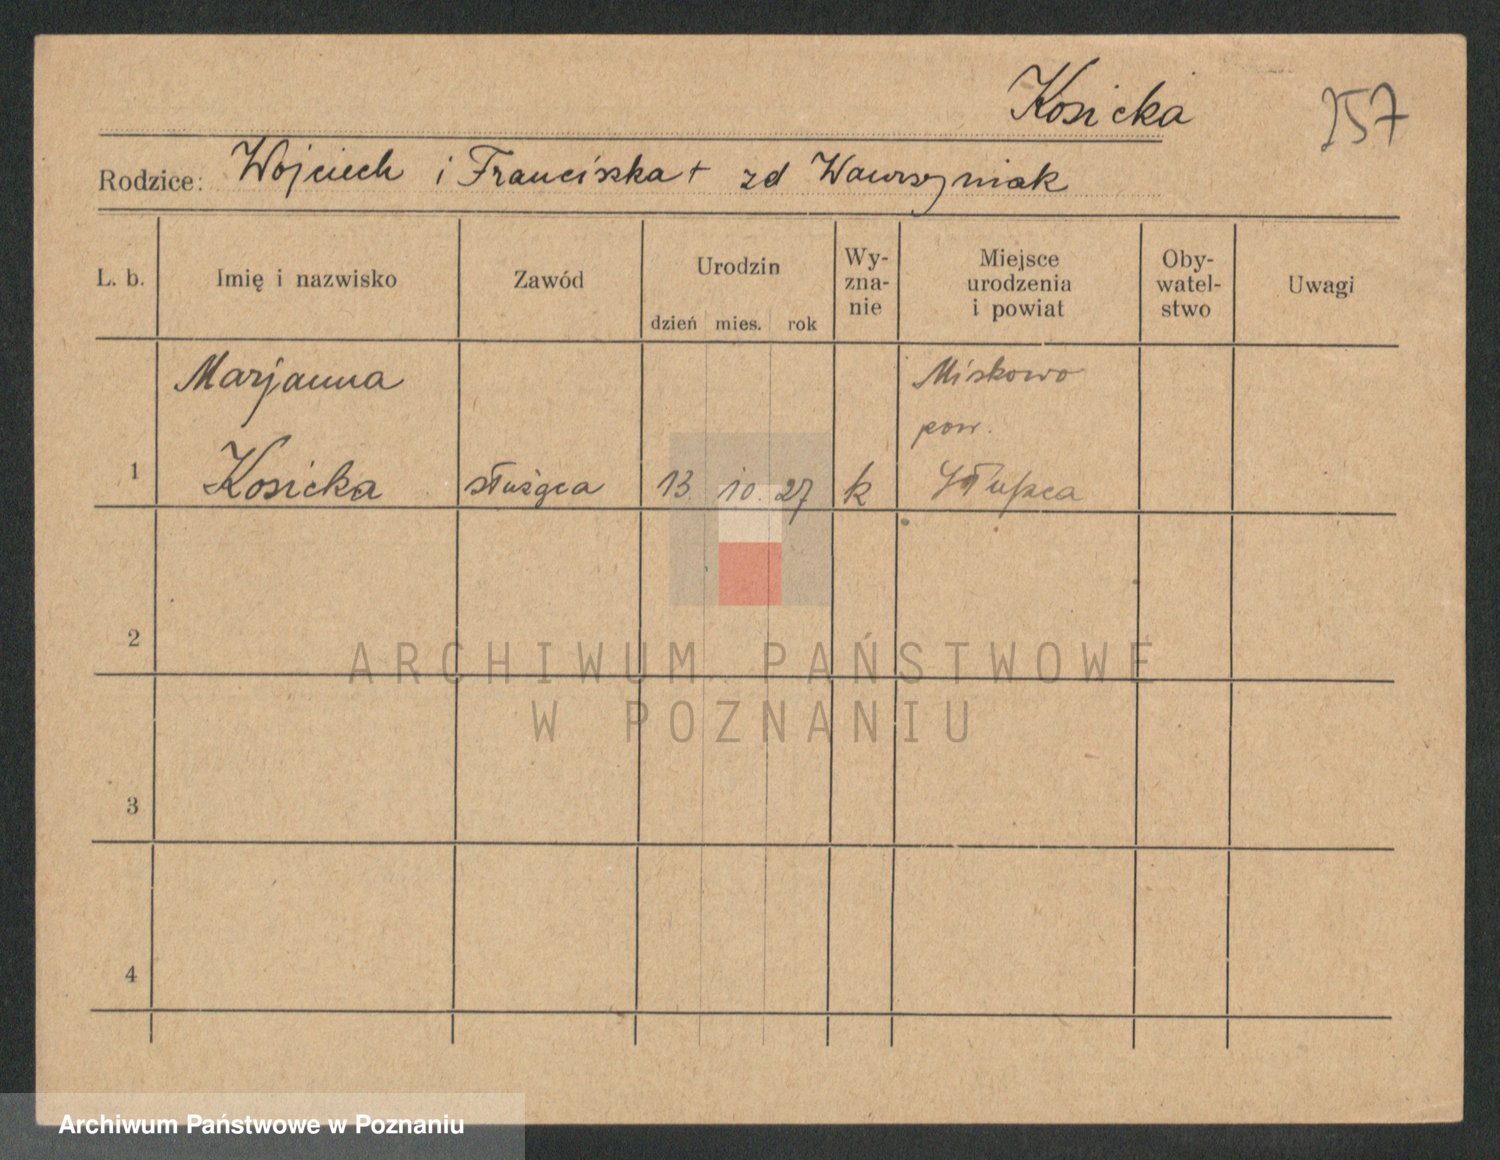 Kosicka
257
Rodzice: Wojciech i Franciszka + zd Wawrzyniak
L. b. Imię i nazwisko Zawód Urodzin dzień mies. rok Wy-znanie Miejsce urodzenia i powiat Oby-watel-stwo Uwagi
Marjanna Miskowo
pow.
1 Kosicka służąca 13. 10. 27 k Słupca
2
ARCHIWUM PAŃSTWOWE
W POZNANIU
3
4
Archiwum Państwowe w Poznaniu